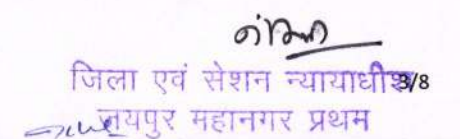 जिला एवं सेशन न्यायाधीश 3/8
जयपुर महानगर प्रथम